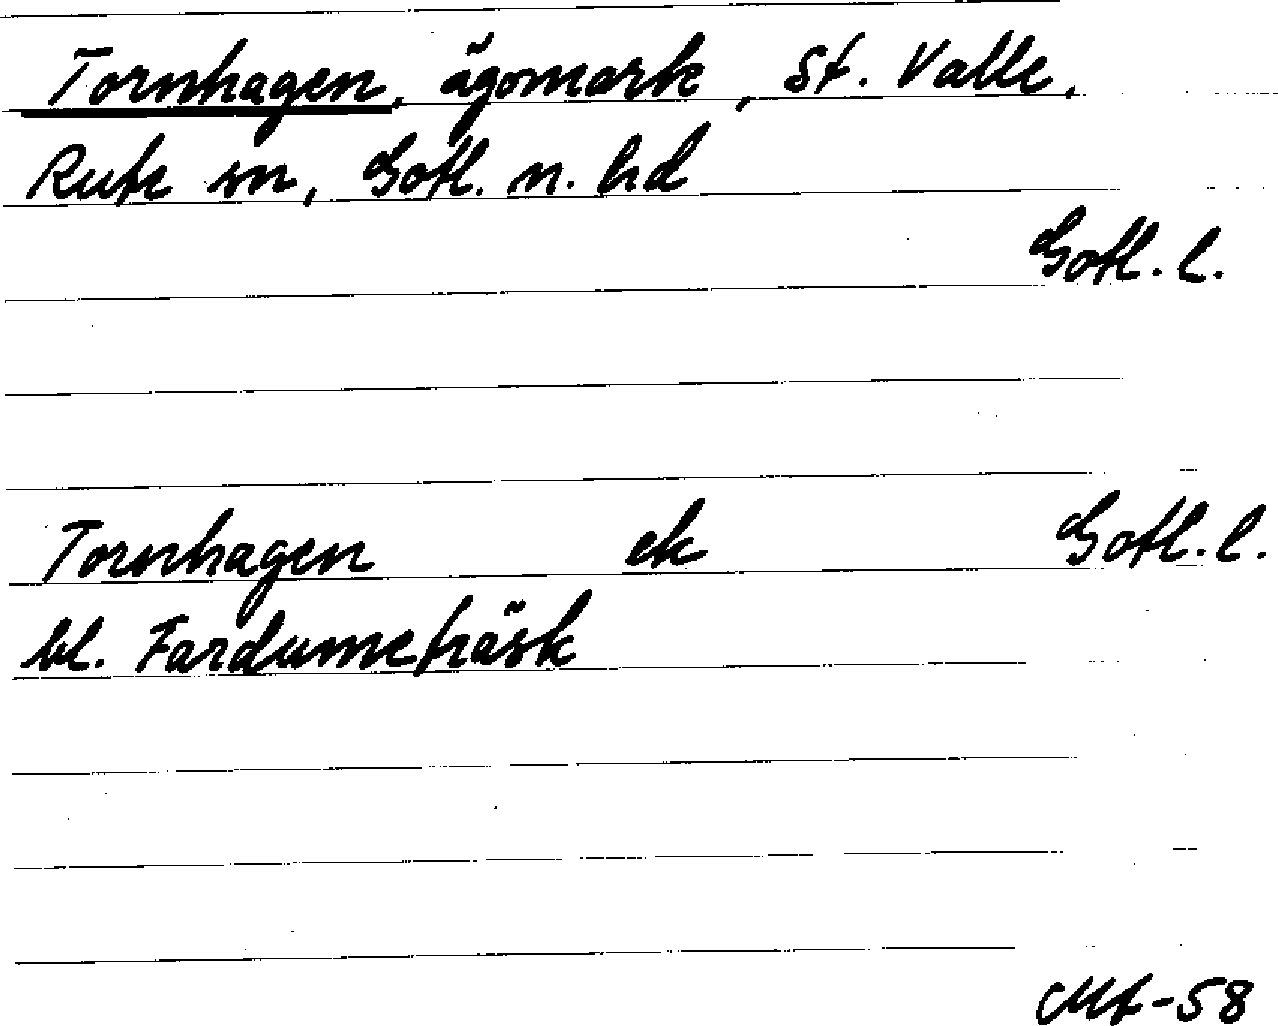 Tornhagen, ägomark, St. Valle,
Rute sn, Gotl. n. hd
Gotl. l.
Tornhagen ek Gotl. l.
bl. Fardumeträsk